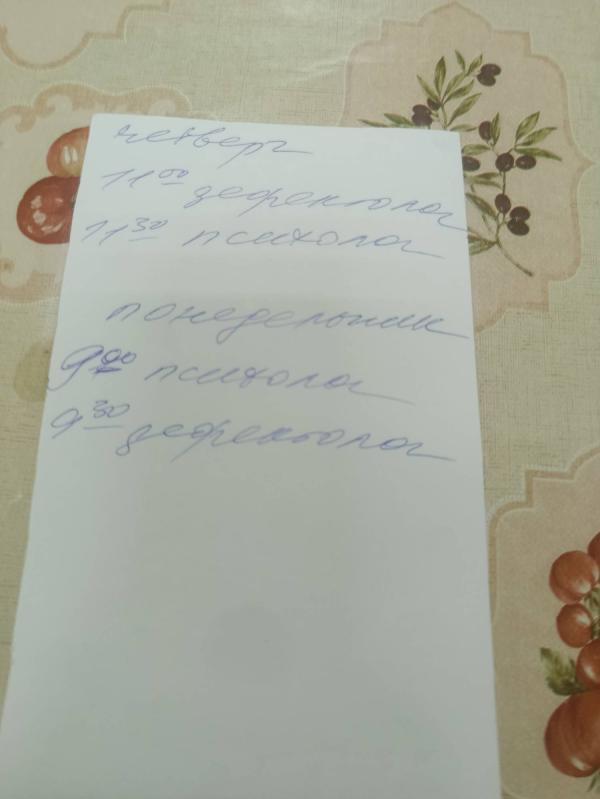 четверг
11 00 дефектолог
11 30 психолог
понедельник
9 00 психолог
9 30 дефектолог